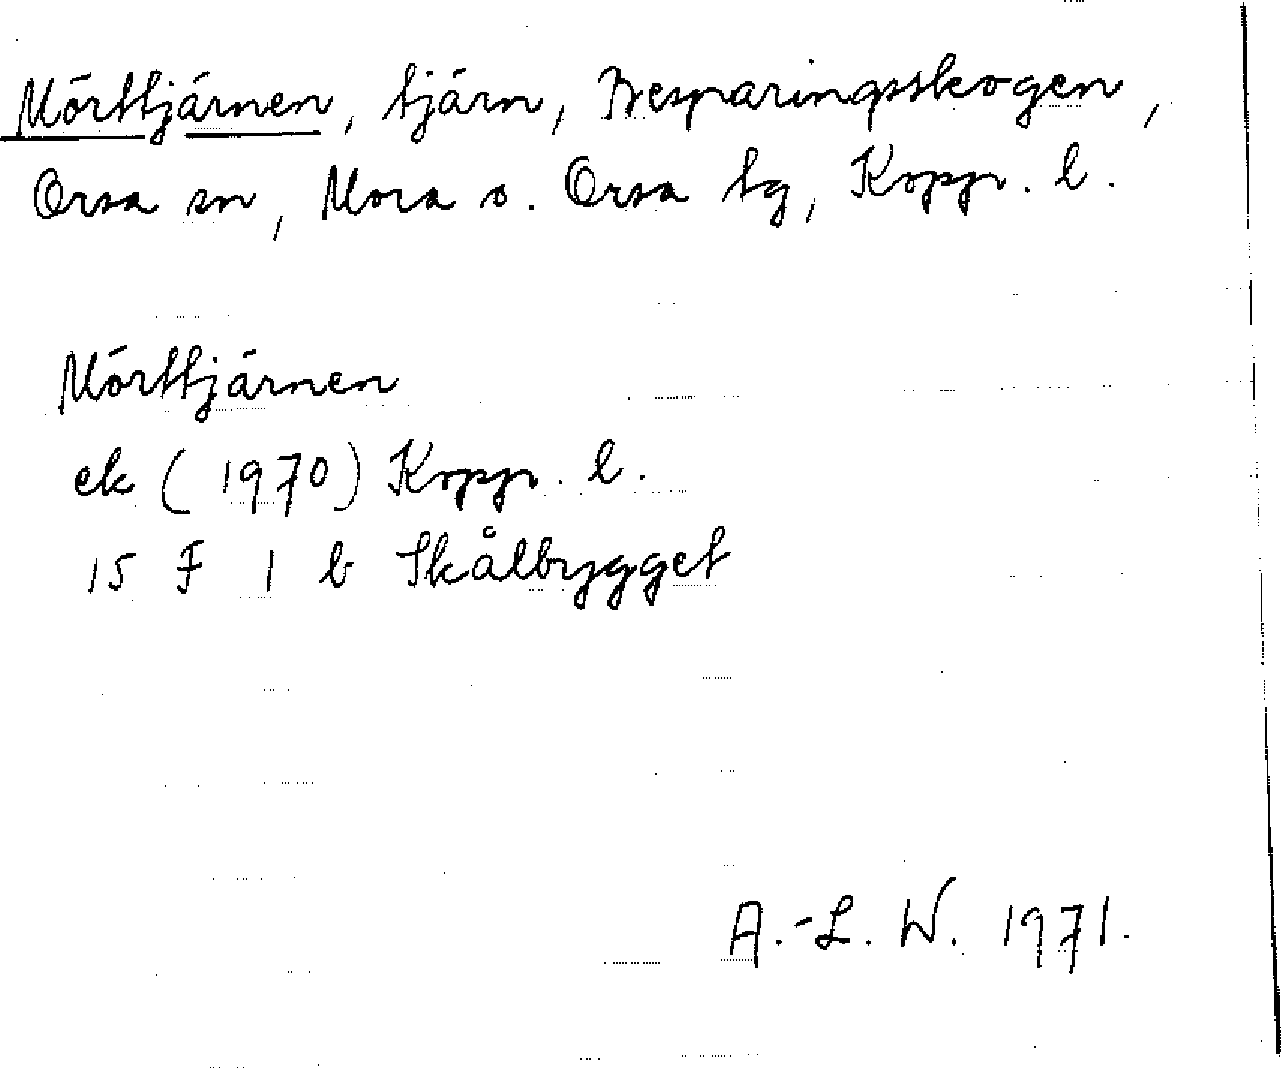 Mörttjärnen, tjärn, Besparingsskogen,
Orsa sn, Mora o. Orsa tg, Kopp. l.
Mörttjärnen
ek (1970) Kopp. l.
15 F 1 b Skålbygget
A.-L. W. 1971.